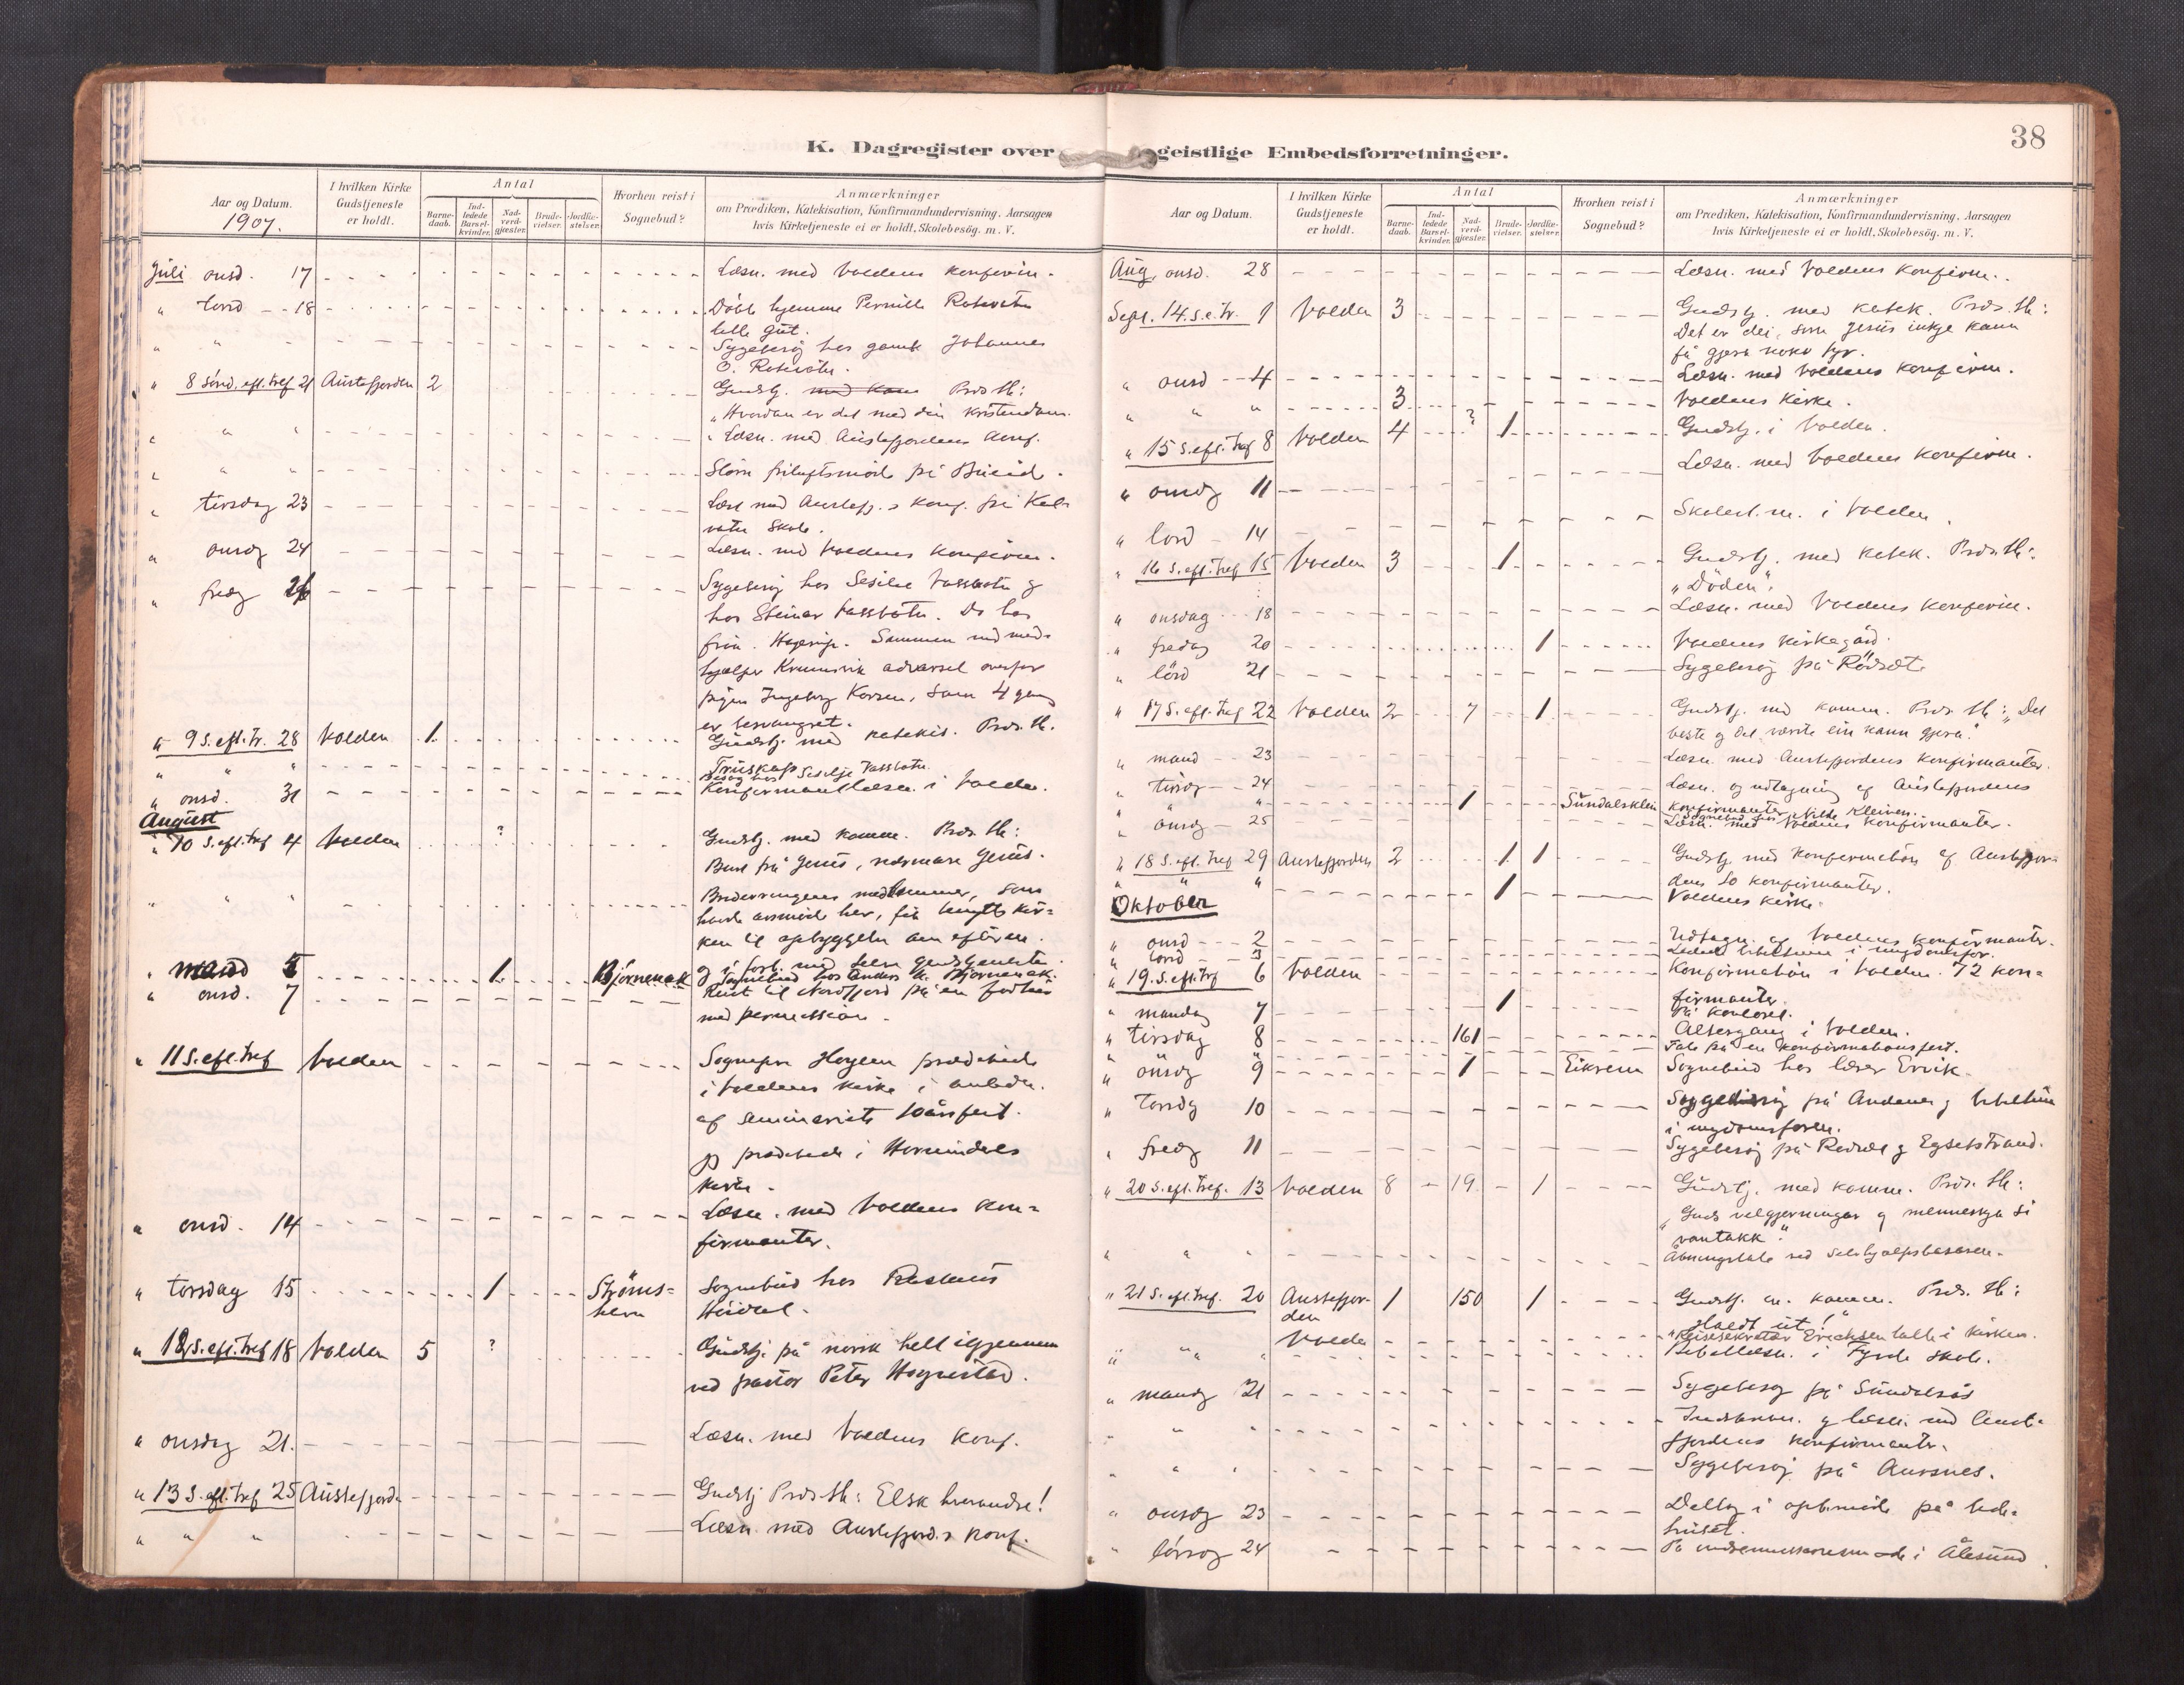 38
K. Dagregister over geistlige Embedsforretninger.
Aar og Datum.
1907.
I hvilken Kirke
Gudstjeneste
er holdt.
Antal
Barne-
daab.
Ind-
ledede
Barsel-
kvinder.
Nad-
verd-
gjæster.
Brude-
vielser.
Jordfæ-
stelser.
Hvorhen reist i
Sognebud?
Anmærkninger
om Prædiken, Katekisation, Konfirmandundervisning. Aarsagen
hvis Kirketjeneste ei er holdt, Skolebesøg. m. V.
Juli onsd. 17 Læsn. med Voldens konfirm.
" torsd 18 Döbt hjemme Pernille Rotevatn
lille gut.
" " Sygebesög hos gamle Johannes
O. Rotevatn.
" 8 sönd. eft. tref 21 Austefjorden 2 Gudstj. Præs. th:
"Hvordan er det med din kristendom.
" " " Læsn. med Austefjordens konf.
" " " Stort friluftsmöde på
" tirsdag 23 Læst med Austefj.s konf. på Kals
vatn skole.
" onsdg 24 Læsn. med Voldens konfirm.
" fredg 26 Sygebesög hos Sesilie Vassbotn og
hos Steinar Vassbotn. Do hos
fru Sammen med med-
hjælper Krumsvik advarsel overfor
pigen Ingeborg som 4 gang
er besvangret.
" 9 S. eft. tr. 28 Volden 1 Gudstj. med katekis. Præs. th.
Truskap
" " " Besög hos Sesilje Vassbotn.
" onsd. 31 Konfirmantlæsn. i Volden.
August
" 10 S. eft. tref 4 Volden ? Gudstj. med komm. Præs. th:
Burt frå Jesus, nærmare Jesus.
" " " medlemmer, som
havde årsmöde her, fik benytte kir-
ken til opbyggelse om efterm.
og i forb. med selve gudstjenesten.
" mand 5 1 Björnenak Sognebud hos Anders K. Björnenak.
" onsd. 7 Reist til Nordfjord på en fodtur
med permission.
" 11 S. eft. tref Volden Sognepr. prædikede
i Voldens kirke i anledn.
af seminariets 10årsfest.
Jeg prædikede i Hornindals
kirke.
" onsd. 14 Læsn. med Voldens kon-
firmanter.
" torsdag 15 1 Ströms-
hevn Sognebud hos Rasmus

" 12 S. eft. tref 18 Volden 5 ? Gudstj. på norsk helt igjennem
ved pastor Peter Hognestad.
" onsdag 21. Læsn. med Voldens konf.
" 13 S. eft. tref 25 Austefjord. Gudstj Præs. th: Elsk hverandre!
" " " Læsn. med Austefjord.s konf.
Aar og Datum.
I hvilken Kirke
Gudstjeneste
er holdt.
Antal
Barne-
daab.
Ind-
ledede
Barsel-
kvinder.
Nad-
verd-
gjæster.
Brude-
vielser.
Jordfæ-
stelser.
Hvorhen reist i
Sognebud?
Anmærkninger
om Prædiken, Katekisation, Konfirmandundervisning. Aarsagen
hvis Kirketjeneste ei er holdt, Skolebesøg. m. V.
Aug. onsd. 28 Læsn. med Voldens konfirm.
Sept. 14. S. e. tr. 1 Volden 3 Gudstj. med katek. Præs. th:
Det er dei, som Jesus inkje kann
få gjera noko fyr.
" onsd 4 Læsn. med Voldens konfirm.
" " " 3 Voldens kirke.
" 15 S. eft. tref 8 Volden 4 ? 1 Gudstj. i Volden.
" onsdg 11 Læsn. med Voldens konfirm.
" lörd 14 Skolest.m. i Volden.
" 16 S. eft. tref 15 Volden 3 1 Gudstj. med katek. Præs. th:
"Döden".
" onsdag 18 Læsn. med Voldens konfirm.
" fredag 20 1 Voldens kirkegård.
" lörd 21 Sygebesög på Rödsæt
" 17 S. eft. tref 22 Volden 2 7 1 Gudstj. med komm. Præs. th: "Det
beste og det verste ein kann gjera."
" mand 23 Læsn. med Austefjordens konfirmanter.
" tirsdg 24 Læsn. og udtagning af Austefjordens
konfirmanter
" " 1 Sundalsklein Sognebud hos Kleiven.
" onsdg 25 Læsn. med Voldens konfirmanter.
" 18 S. eft. tref 29 Austefjorden 2 1 1 Gudstj. med konfirmation af Austefjor-
dens 10 konfirmanter.
" " " 1 Voldens kirke.
Oktober
" onsd 2 Udtagn. af Voldens konfirmanter.
" torsd 3 Ledet bibeltime i ungdomsfor.
" 19. S. eft. tref 6 Volden Konfirmation i Volden. 72 kon-
firmanter.
" mandag 7 1 På kontoret.
" tirsdag 8 161 Altergang i Volden.
" " Tale på en konfirmationsfest.
" onsdg 9 1 Eikrem Sognebud hos lærer Ervik.
" Torsdg 10 Sygebesög på Andenes og bibeltime
i ungdomsforen.
" fredg 11 Sygebesög på Rödsæt og Egsetstrand.
" 20 S. eft. tref. 13 Volden 8 19 1 Gudstj. med komm. Præs. th:
"Guds velgjerningar og menneskja si
vantakk."
" " " Åbningstale ved
" 21 S. eft. tref. 20 Austefjor-
den 1 150 1 Gudstj. m. komm. Præs. th:
"Haldt ut!"
Volden Reisesekretær Erichsen talte i kirken.
" " " Bibellæsn. i skole.
" mandg 21 Sygebesög på Sundalsås
" " " Indskrivn. og læsn. med Auste-
fjordens konfirmanter.
" " " Sygebesög på Aursnes.
" onsdg 23 Deltog i opb.möde på bede-
huset.
" 24 På i Ålesund.